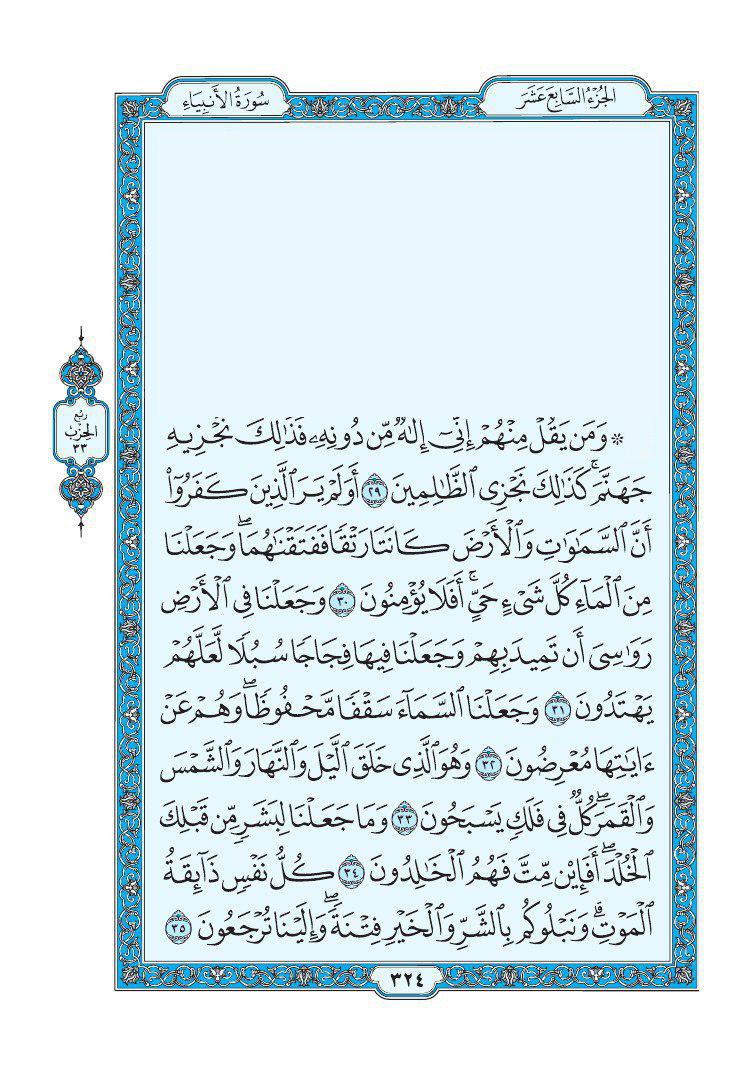 الجُزْءُ السَّابِعَ عَشَرَ
سُورَةُ الأَنبِيَاءِ
رُبع
الحِزْبِ
٣٣
۞ وَمَن يَقُلْ مِنْهُمْ إِنِّىٓ إِلَٰهٌ مِّن دُونِهِۦ فَذَٰلِكَ نَجْزِيهِ
جَهَنَّمَۚ كَذَٰلِكَ نَجْزِى ٱلظَّٰلِمِينَ ٢٩ أَوَلَمْ يَرَ ٱلَّذِينَ كَفَرُوٓا۟
أَنَّ ٱلسَّمَٰوَٰتِ وَٱلْأَرْضَ كَانَتَا رَتْقًا فَفَتَقْنَٰهُمَاۖ وَجَعَلْنَا
مِنَ ٱلْمَآءِ كُلَّ شَىْءٍ حَىٍّۚ أَفَلَا يُؤْمِنُونَ ٣٠ وَجَعَلْنَا فِى ٱلْأَرْضِ
رَوَٰسِىَ أَن تَمِيدَ بِهِمْ وَجَعَلْنَا فِيهَا فِجَاجًا سُبُلًا لَّعَلَّهُمْ
يَهْتَدُونَ ٣١ وَجَعَلْنَا ٱلسَّمَآءَ سَقْفًا مَّحْفُوظًاۖ وَهُمْ عَنْ
ءَايَٰتِهَا مُعْرِضُونَ ٣٢ وَهُوَ ٱلَّذِى خَلَقَ ٱلَّيْلَ وَٱلنَّهَارَ وَٱلشَّمْسَ
وَٱلْقَمَرَۖ كُلٌّ فِى فَلَكٍ يَسْبَحُونَ ٣٣ وَمَا جَعَلْنَا لِبَشَرٍ مِّن قَبْلِكَ
ٱلْخُلْدَۖ أَفَإِي۟ن مِّتَّ فَهُمُ ٱلْخَٰلِدُونَ ٣٤ كُلُّ نَفْسٍ ذَآئِقَةُ
ٱلْمَوْتِۗ وَنَبْلُوكُم بِٱلشَّرِّ وَٱلْخَيْرِ فِتْنَةًۖ وَإِلَيْنَا تُرْجَعُونَ ٣٥
٣٢٤